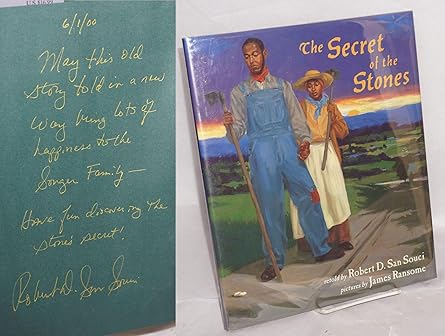 6/1/00
May this old
story told in a new
way bring lots of
happiness to the
Songer Family—
Have fun discovering the
stone's secret!
Robert D. San Souci
The Secret
of the
Stones
retold by Robert D. San Souci
pictures by James Ransome